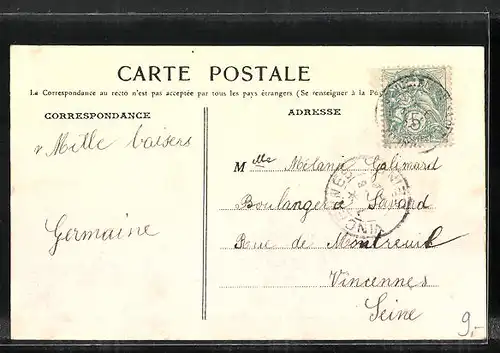 CARTE POSTALE
La Correspondance au recto n'est pas acceptée par tous les pays étrangers (Se renseigner à la Po
CORRESPONDANCE
ADRESSE
Mille baisers
Germaine
Mlle Mélanie Galimard
Boulangerie Savard
Rue de Montreuil
Vincennes
Seine
5
9,-